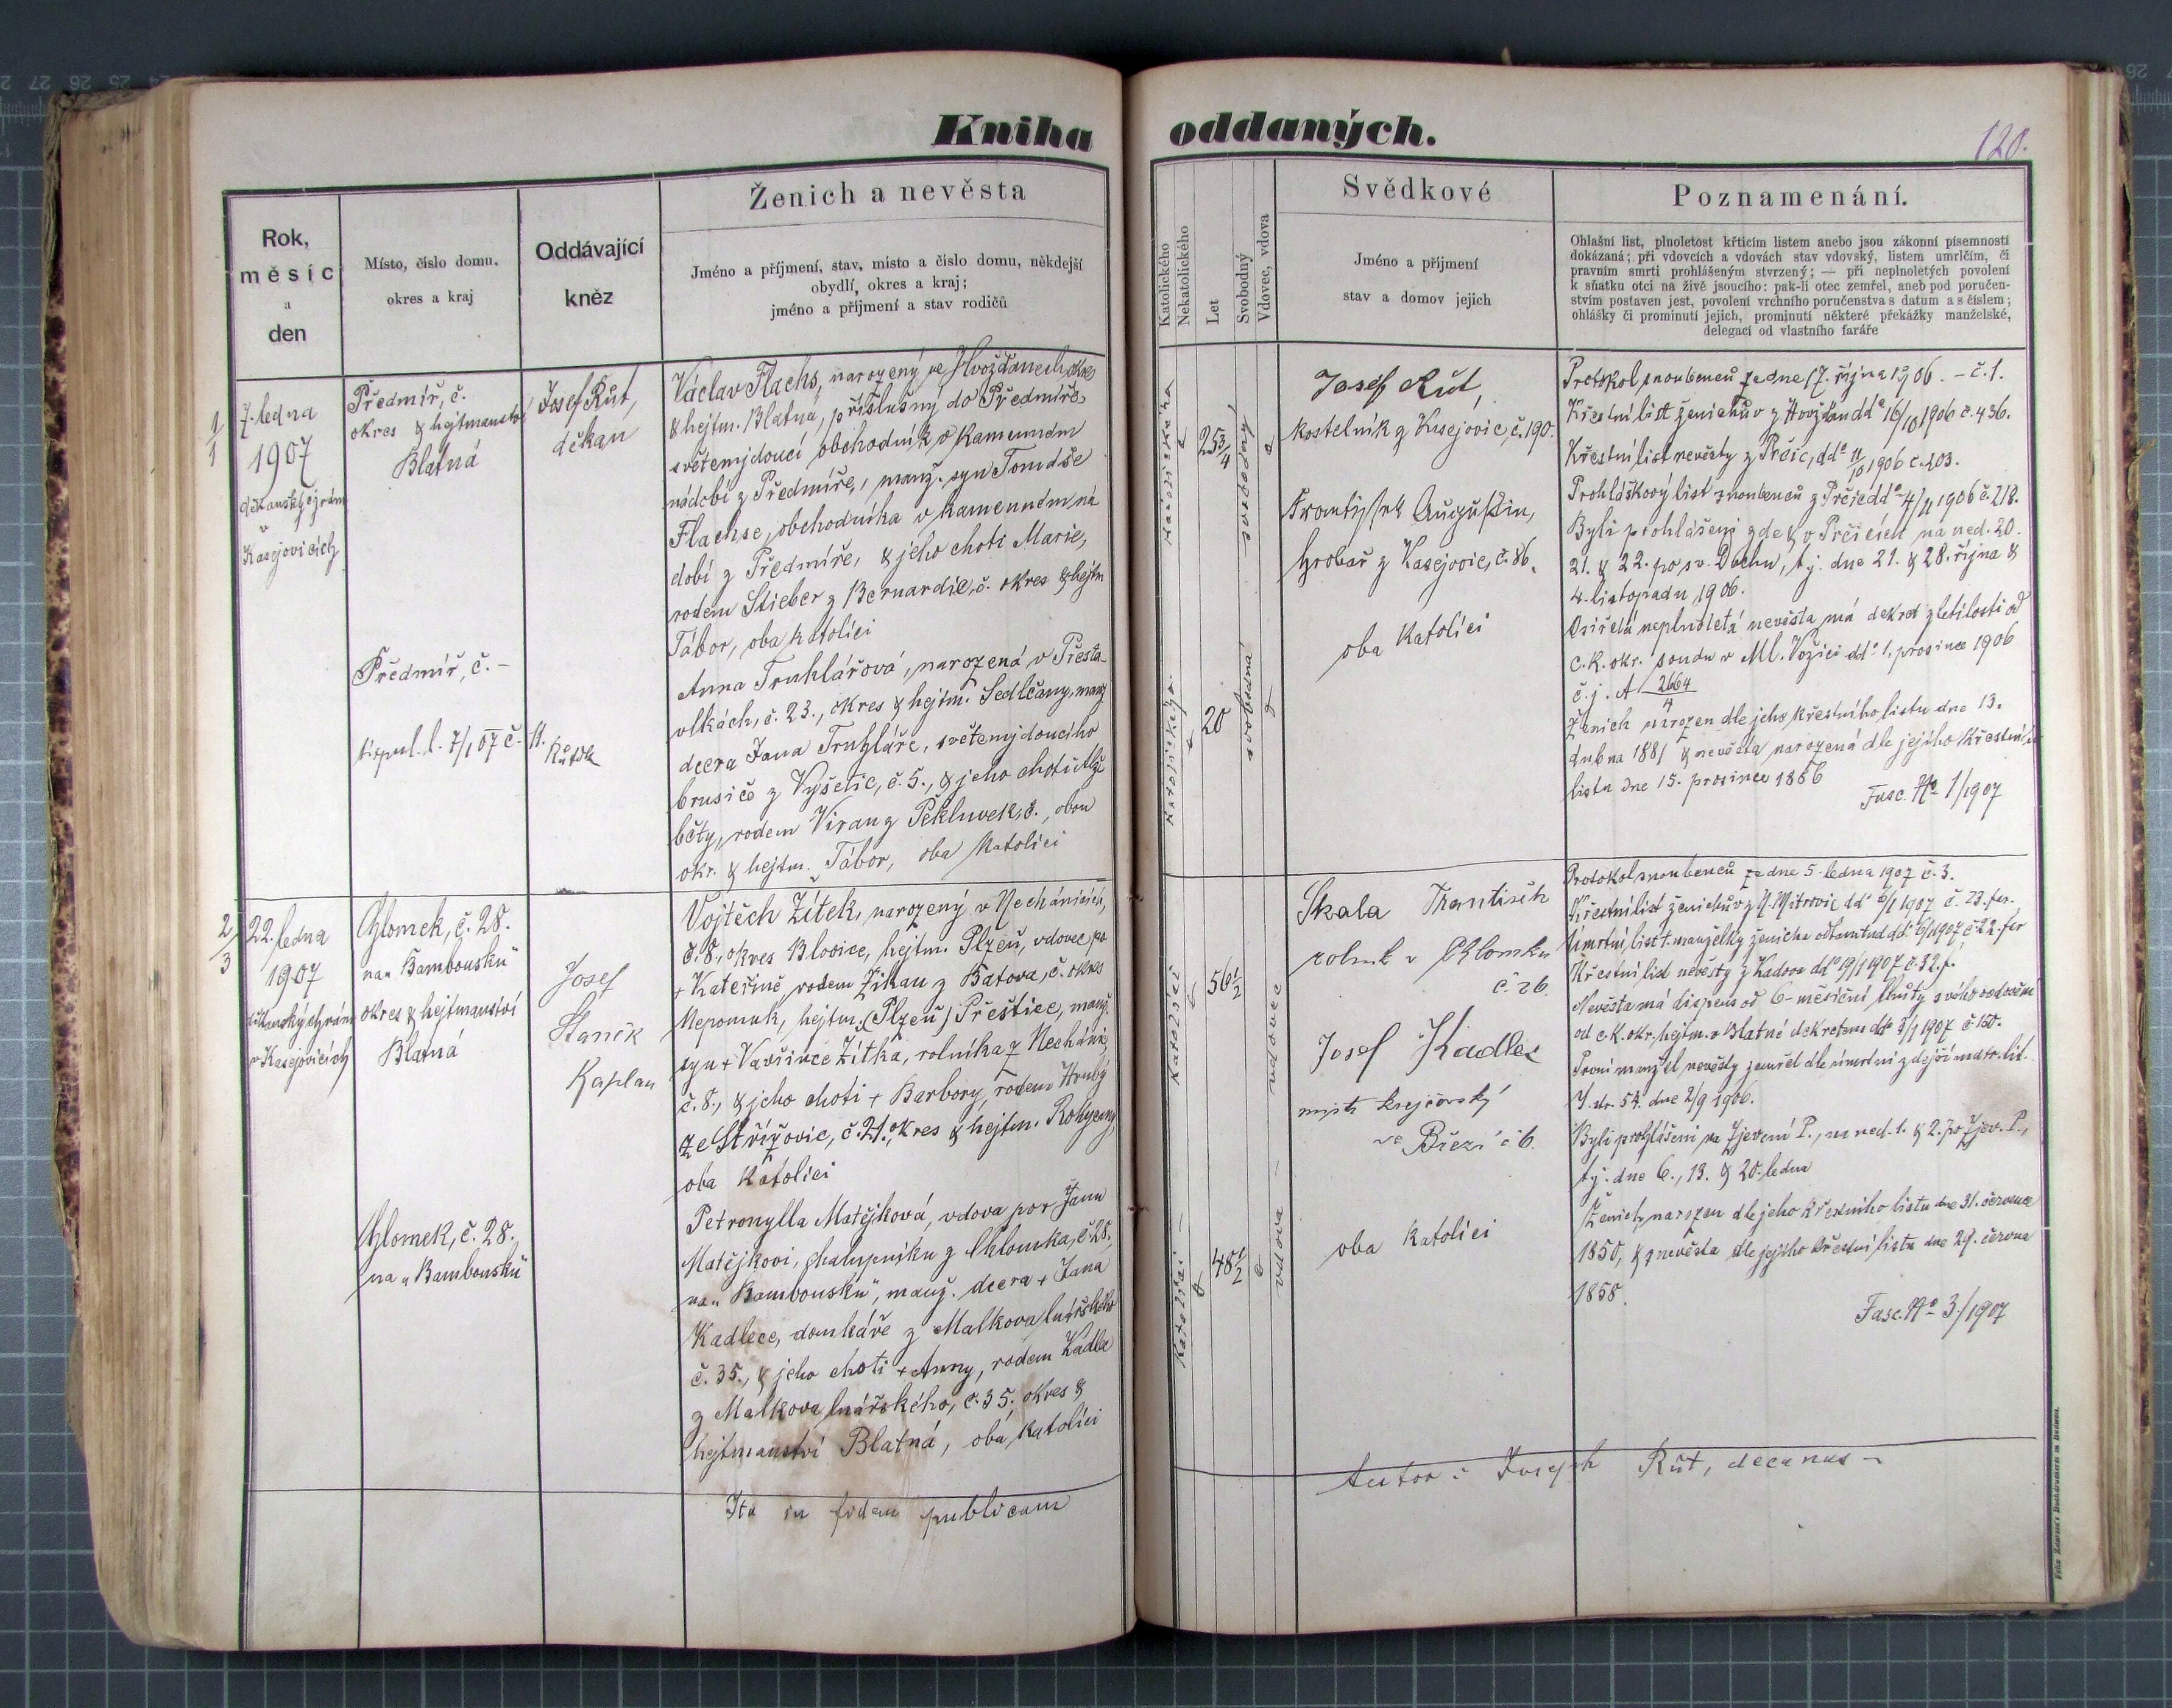 Kniha oddaných.
120.
Rok,
měsíc
a
den
Místo, číslo domu,
okres a kraj
Oddávající
kněz
Ženich a nevěsta
Jméno a příjmení, stav, místo a číslo domu, někdejší
obydlí, okres a kraj;
jméno a příjmení a stav rodičů
Katolického
Nekatolického
Let
Svobodný
Vdovec, vdova
Svědkové
Jméno a příjmení
stav a domov jejich
Poznamenání.
Ohlašní list, plnoletost křticím listem anebo jsou zákonní písemností
dokázaná; při vdovcích a vdovách stav vdovský, listem umrlčím, či
pravním smrti prohlášeným stvrzený; — při neplnoletých povolení
k sňatku otci na živě jsoucího: pak-li otec zemřel, aneb pod poručen-
stvím postaven jest, povolení vrchního poručenstva s datum a s číslem;
ohlášky či prominutí jejích, prominutí některé překážky manželské,
delegací od vlastního faráře
1/1
7. ledna
1907
děkanský chrám
v
Kasejovicích
Předmíř, č.
okres & hejtmanství
Blatná
Předmíř, č. –
kopul. l. 7/1 07 č. 11.
Růt dk
Josef Růt,
děkan
Václav Flachs, narozený ve Hvožďanech okres
& hejtm. Blatná, příslušný do Předmíře,
světemjdoucí obchodník v kamenném
nádobí z Předmíře, manž. syn Tomáše
Flachse, obchodníka v kamenném ná
dobí z Předmíře, & jeho choti Marie,
rodem Stieber z Bernardic, č. okres & hejtm
Tábor, oba katolíci
Anna Truhlářová, narozená v Přesta-
vlkách, č. 23., okres & hejtm. Sedlčany, manž
dcera Jana Truhláře, světemjdoucího
brusiče z Vyšetic, č. 5., & jeho choti Alž
běty, rodem Viran z Pekluvek, č., obou
okr. & hejtm. Tábor, oba katolíci
katolického
25 3/4
svobodný
katolického
20
svobodná
Josef Růt,
kostelník z Kasejovic, č. 190.
František Augustin,
hrobař z Kasejovic, č. 86.
oba katolíci
Protokol snoubenců ze dne 17. října 1906. – č. 1.
Křestní list ženichův z Hvožďan ddo 16/10 1906 č. 436.
Křestní list nevěsty z Prčic, ddo 11/10 1906 č. 203.
Prohláškový list snoubenců z Prčic ddo 4/11 1906 č. 218.
Byli prohlášeni zde & v Prčicích na ned. 20.
21. & 22. po sv. Duchu, tj. dne 21. & 28. října &
4. listopadu 1906.
Osiřelá neplnoletá nevěsta má dekret zletilosti od
c. k. okr. soudu v Ml. Vožici ddo 1. prosince 1906
č. j. A 2664/4
Ženich narozen dle jeho křestního listu dne 13.
dubna 1881 & nevěsta narozená dle jejího křestního
listu dne 15. prosince 1886
Fasc. No 1/1907
2/3
22. ledna
1907
děkanský chrám
v Kasejovicích
Chlomek, č. 28.
na „Bambousku"
okres & hejtmanství
Blatná
Chlomek, č. 28.
na „Bambousku"
Josef
Staněk
Kaplan
Vojtěch Žítek, narozený v Nechánicích,
č. 8., okres Blovice, hejtm. Plzeň, vdovec po
+ Kateřině, rodem Žikan z Batova, č. okres
Nepomuk, hejtm. (Plzeň) Přeštice, manž.
syn + Vavřince Žítka, rolníka z Nechánic
č. 8., & jeho choti + Barbory, rodem Hrubý
ze Střížovic, č. 21., okres & hejtm. Rokycany,
oba katolíci
Petronylla Matějková, vdova po + Janu
Matějkovi, chalupníku z Chlomka, č. 28.,
na „Bambousku", manž. dcera + Jana
Kadlece, domkáře z Malkova lnářského
č. 35., & jeho choti + Anny, rodem Kadlec
z Malkova lnářského, č. 35., okres &
hejtmanství Blatná, oba katolíci
Katolický
56 1/2
vdovec
Katolický
48 1/2
vdova
Skala František
rolník v Chlomku
č. 26.
Josef Kadlec
mistr krejčovský
ve Březí č. 6.
oba katolíci
Protokol snoubenců ze dne 5. ledna 1907 č. 3.
Křestní list ženichův z N. Mitrovic ddo 6/1 1907 č. 23. far.
Úmrtní list 1. manželky ženicha odtamtud dd. 6/1 1907 č. 22. far
Křestní list nevěsty z Kadova ddo 19/1 1907 č. 32. f.
Nevěsta má dispens od 6-měsíční lhůty svého vdovství
od c. k. okr. hejtm. v Blatné dekretem ddo 3/1 1907 č. 150.
První manžel nevěsty zemřel dle úmrtní zdejší matr. lit.
J. str. 54. dne 2/9 1906.
Byli prohlášeni na Zjevení P., na ned. 1. & 2. po Zjev. P.,
tj. dne 6., 13. & 20. ledna
Ženich narozen dle jeho křestního listu dne 31. července
1850, & nevěsta dle jejího křestní listu dne 29. června
1858.
Fasc. No 3./1907
Ita in fidem publicam
Autor: Joseph Růt, decanus